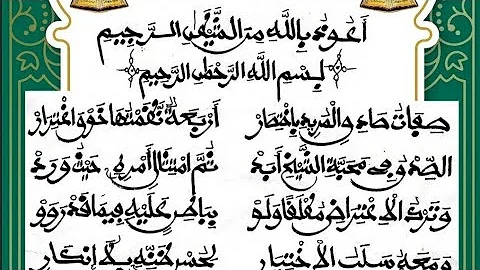 أعوذ بالله من الشيطن الرجيم
بسم الله الرحمن الرحيم
صفات المريد باختصار أربعة نظمتها خوف اغترار
الصدق في محبة الشيخ أبد ثم امتثال أمره حيث ورد
وترك الاعتراض مطلقا ولو بباطن عليه فيما قد رووا
ومعه سلب الاختيار لحسن ظنه بلا إنكار